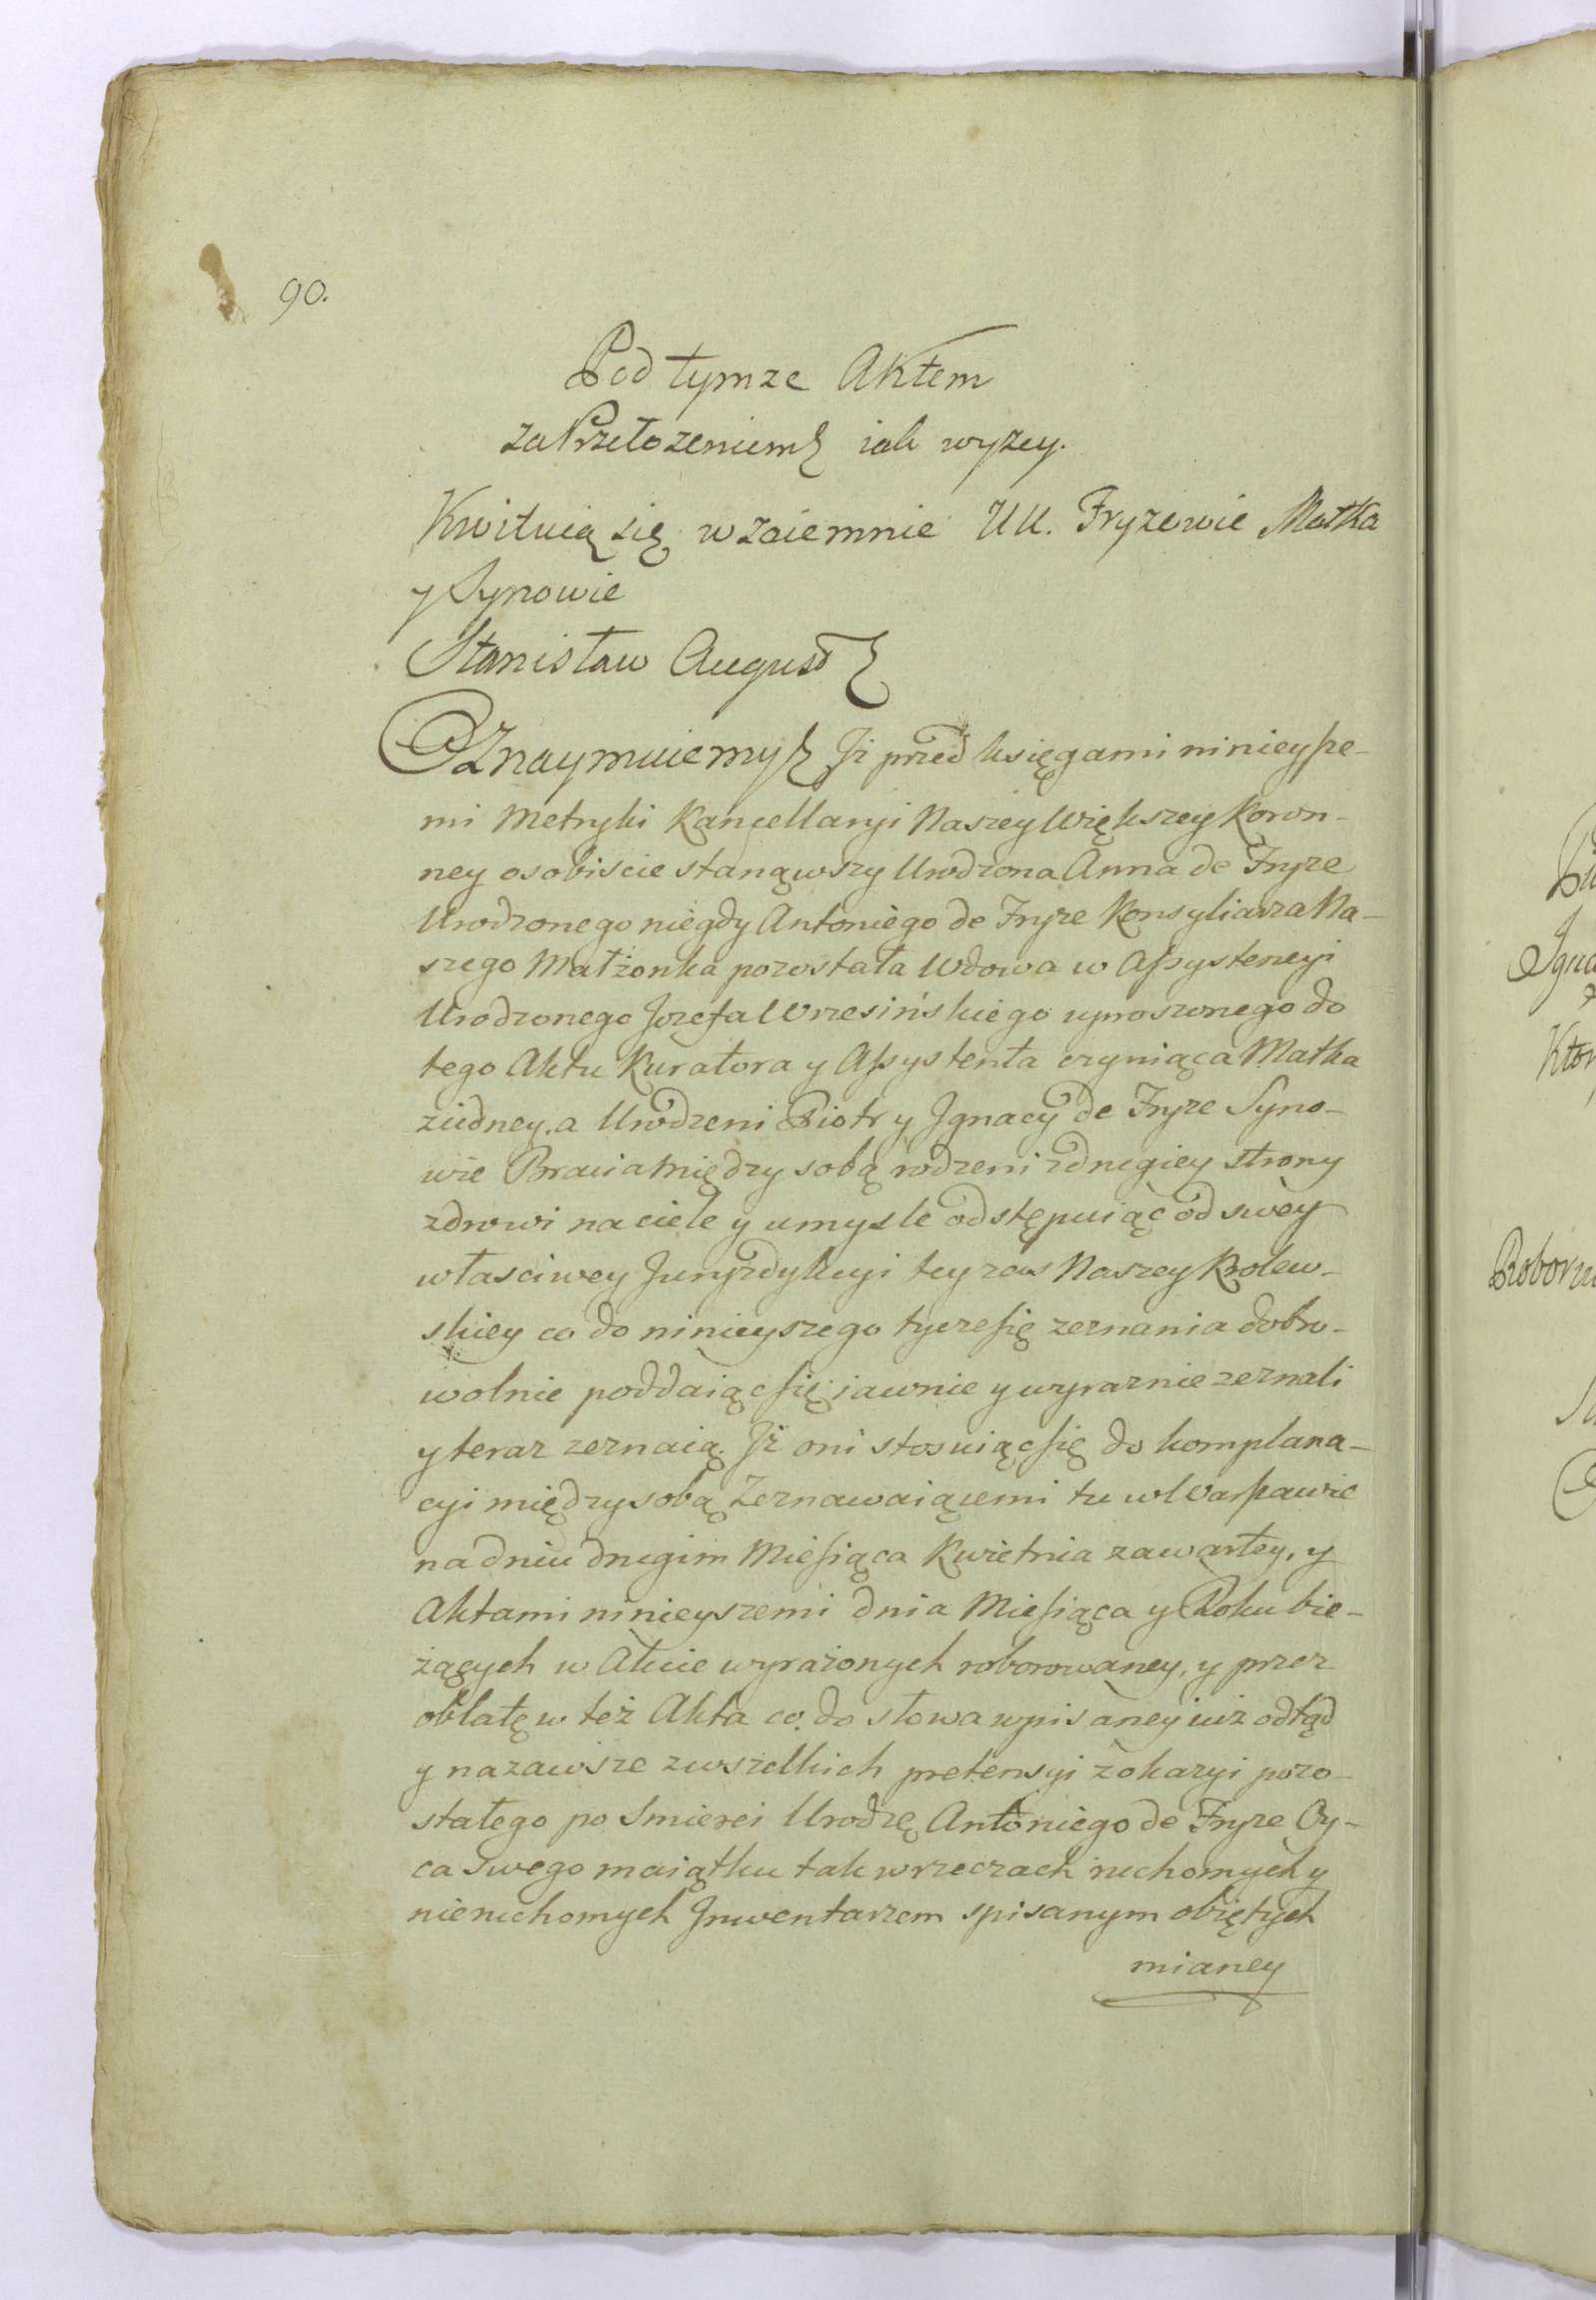 90.
Pod tymze Aktem
za Przełozeniem iak wyzey.
Kwituią się wzaiemnie UU. Fryzowie Matka
y Synowie
Stanisław August
Oznaymuiemy Iż przed księgami ninieysze-
mi Metryki Kancellaryi Naszey Większey Koron-
ney osobiscie stanąwszy Urodzona Anna de Fryze
Urodzonego niegdy Antoniego de Fryze Konsyliarza Na-
szego Małżonka pozostała Wdowa w Assystencyi
Urodzonego Jozefa Wrzesińskiego uproszonego do
tego Aktu Kuratora y Assystenta czyniąca Matka
ziedney, a Urodzeni Piotr y Jgnacy de Fryze Syno-
wie Bracia między sobą rodzeni zdrugiey strony
zdrowi na ciele y umysle odstępuiąc od swey
właściwey Juryzdykcyi tey zas Naszey Krolew-
skiey co do ninieyszego tycze się zeznania dobro-
wolnie poddaiąc się iawnie y wyraznie zeznali
y teraz zeznaią. Iż oni stosuiąc się do komplana-
cyi między sobą Zeznawaiącemi tu w Warszawie
na dniu drugim Miesiąca Kwietnia zawartey, y
Aktami ninieyszemi dnia Miesiąca y Roku bie-
żących w Akcie wyrażonych roborowaney, y przez
oblatę w też Akta co do słowa wpisaney iuż odtąd
y nazawsze zwszelkich pretensyi z okazyi pozo-
stałego po Smierci Urodzę Antoniego de Fryze Oy-
ca Swego maiątku tak w rzeczach ruchomych y
nieruchomych Jnwentarzem spisanym obiętych
mianey
Jgna
Ktor
Roborow